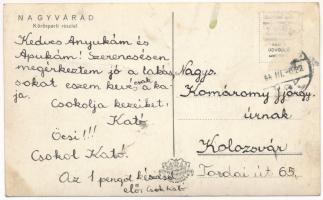 NAGYVÁRAD
Körösparti részlet
Kedves Anyukám és
Apukám! Szerencsésen
megérkeztem jó a lakás
csak
sokat eszem keves a ka-
ja.
Csokolja kezeiket:
Kató
Öcsi!!!
Csokol Kató.
Az 1 pengőt
előr Csók Kató
Nagys.
Komáromy György
úrnak
Kolozsvár
Tordai út 65.